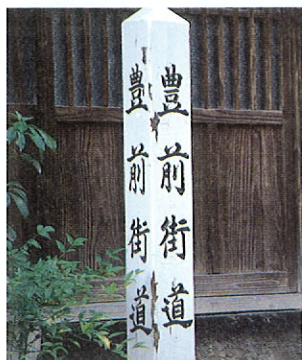 豊前街道
豊前街道